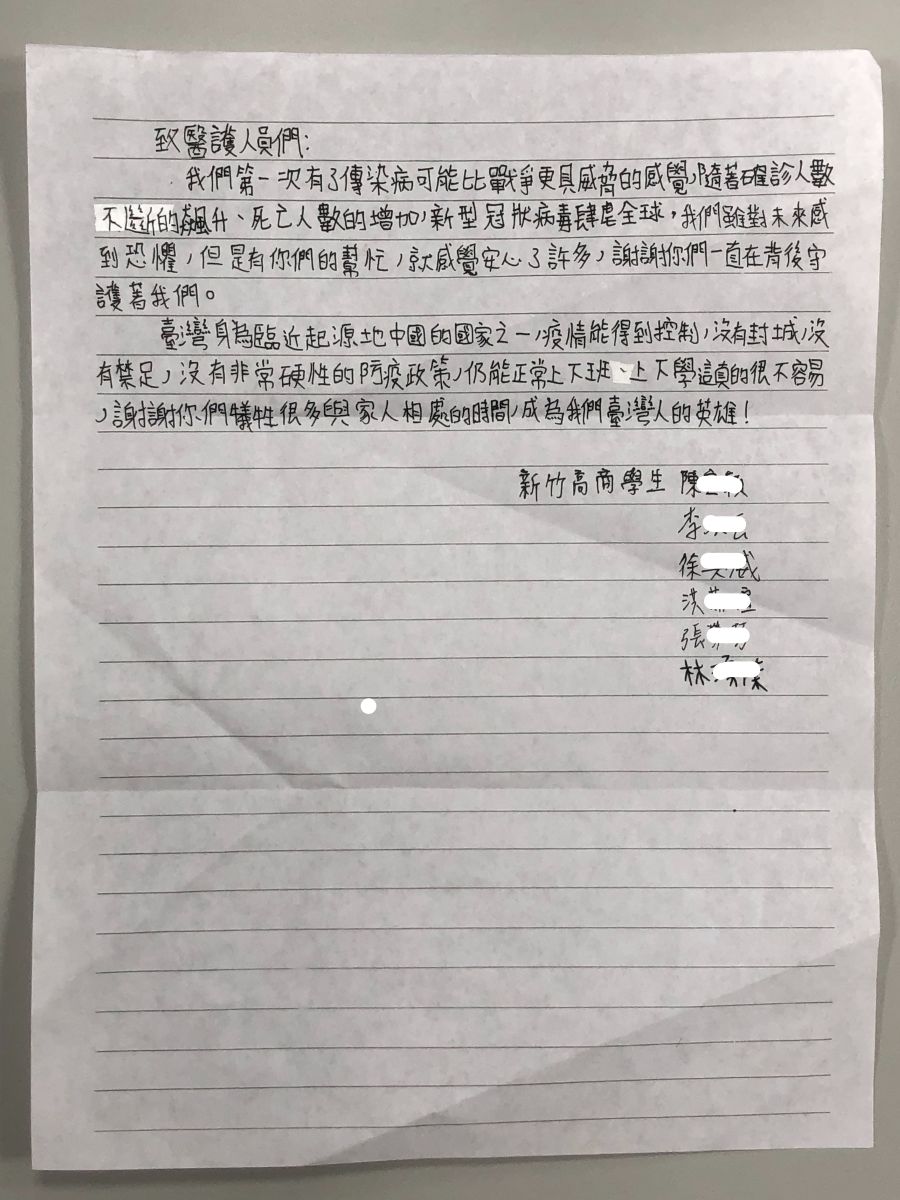 致醫護人員們:
我們第一次有了傳染病可能比戰爭更具威脅的感覺,隨著確診人數
不斷的飆升、死亡人數的增加,新型冠狀病毒肆虐全球,我們雖對未來感
到恐懼,但是有你們的幫忙,就感覺安心了許多,謝謝你們一直在背後守
護著我們。
臺灣身為臨近起源地中國的國家之一,疫情能得到控制,沒有封城,沒
有禁足,沒有非常硬性的防疫政策,仍能正常上下班、上下學這真的很不容易
,謝謝你們犧牲很多與家人相處的時間,成為我們臺灣人的英雄!
新竹高商學生 陳
李
徐 威
洪
張
林